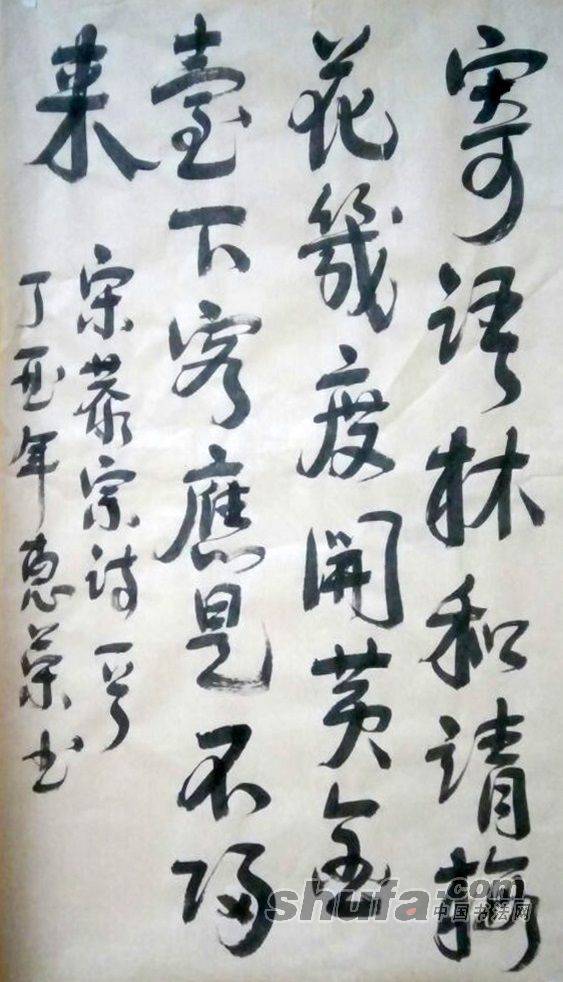 寄語林和靖梅
花幾度開黄金
臺下客應是不歸
来
宋恭宗诗一首
丁酉年惠荣书
shufa.com
中国书法网